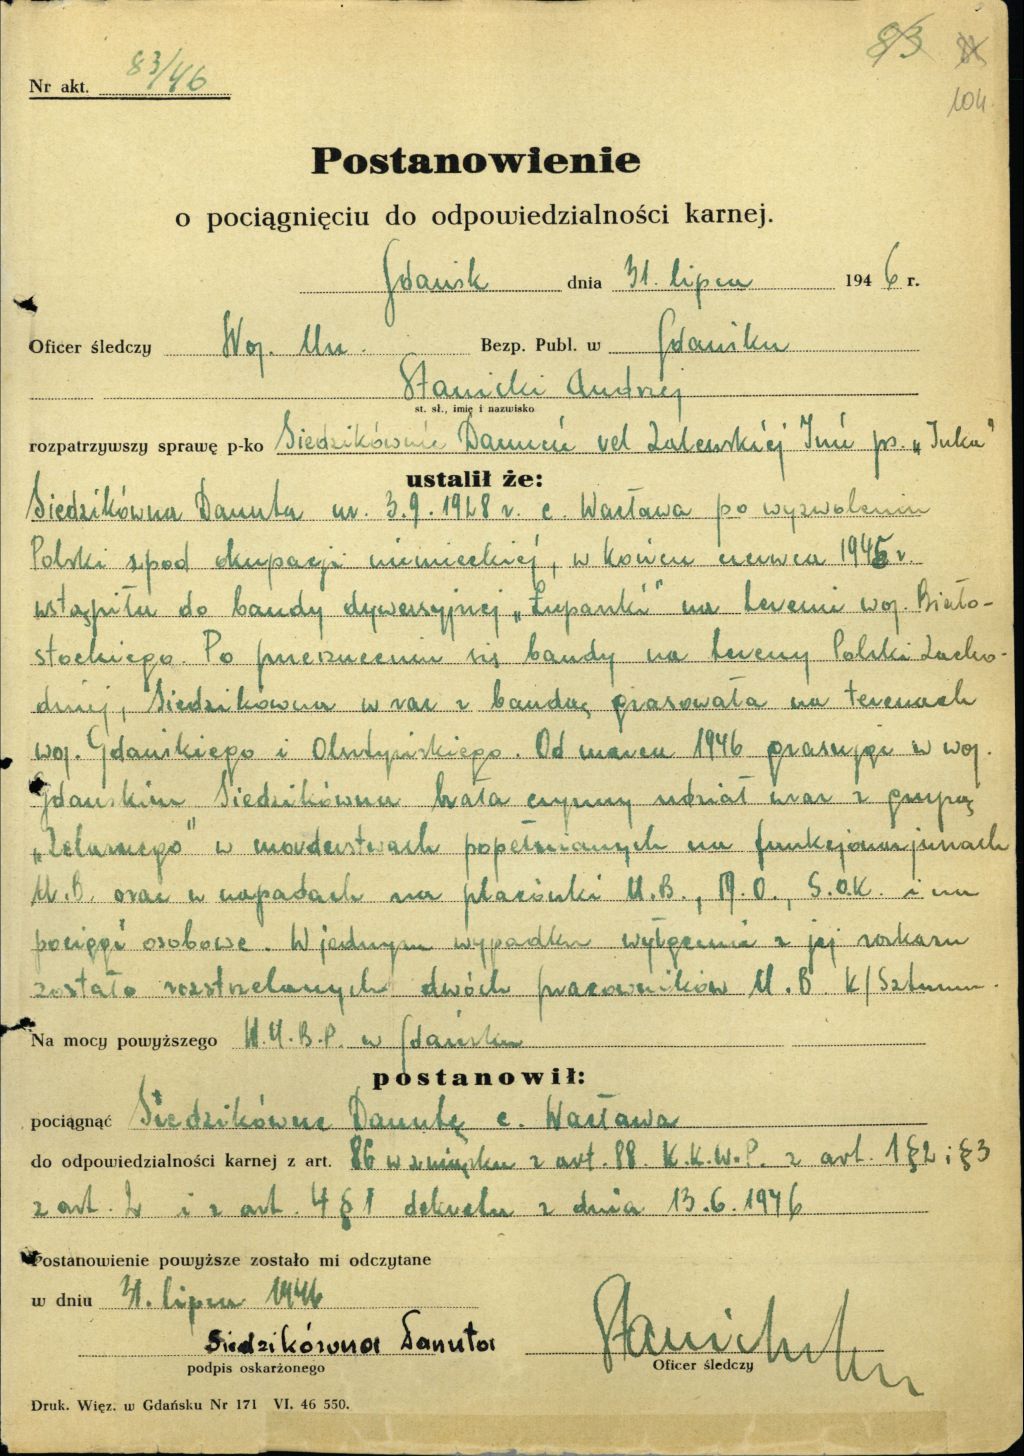 83
104
Nr akt. 83/46
Postanowienie
o pociągnięciu do odpowiedzialności karnej.
Gdańsk dnia 31. lipca 1946 r.
Oficer śledczy Woj. Un. Bezp. Publ. w Gdańsku
Stanicki Andrzej
st. sł., imię i nazwisko
rozpatrzywszy sprawę p-ko Siedzikównie Danucie vel Zalewskiej Inie ps. „Inka"
ustalił że:
Siedzikówna Danuta ur. 3.9.1928 r. c. Wacława po wyzwoleniu
Polski z pod okupacji niemieckiej, w końcu czerwca 1945 r.
wstąpiła do bandy dywersyjnej „Łupaszki" na terenie woj. Biało-
stockiego. Po przerzuceniu się bandy na tereny Polski Zacho-
dniej, Siedzikówna wraz z bandą grasowała na terenach
woj. Gdańskiego i Olsztyńskiego. Od marca 1946 grasując w woj.
Gdańskim Siedzikówna brała czynny udział wraz z grupą
„Żelaznego" w morderstwach popełnianych na funkcjonarjuszach
U.B. oraz w napadach na placówki U.B., M.O., S.O.K. i na
pociągi osobowe. W jednym wypadku wyłącznie z jej rozkazu
zostało rozstrzelanych dwóch pracowników U.B. k/Sztumu.
Na mocy powyższego W.U.B.P. w Gdańsku
postanowił:
pociągnąć Siedzikównę Danutę c. Wacława
do odpowiedzialności karnej z art. 86 w związku z art. 88. K.K.W.P. z art. 1 §2 i §3
z art. 2 i z art. 4 § 1 dekretu z dnia 13.6.1946
Postanowienie powyższe zostało mi odczytane
w dniu 31. lipca 1946
Siedzikówna Danuta Stanicki
podpis oskarżonego Oficer śledczy
Druk. Więz. w Gdańsku Nr 171 VI. 46 550.